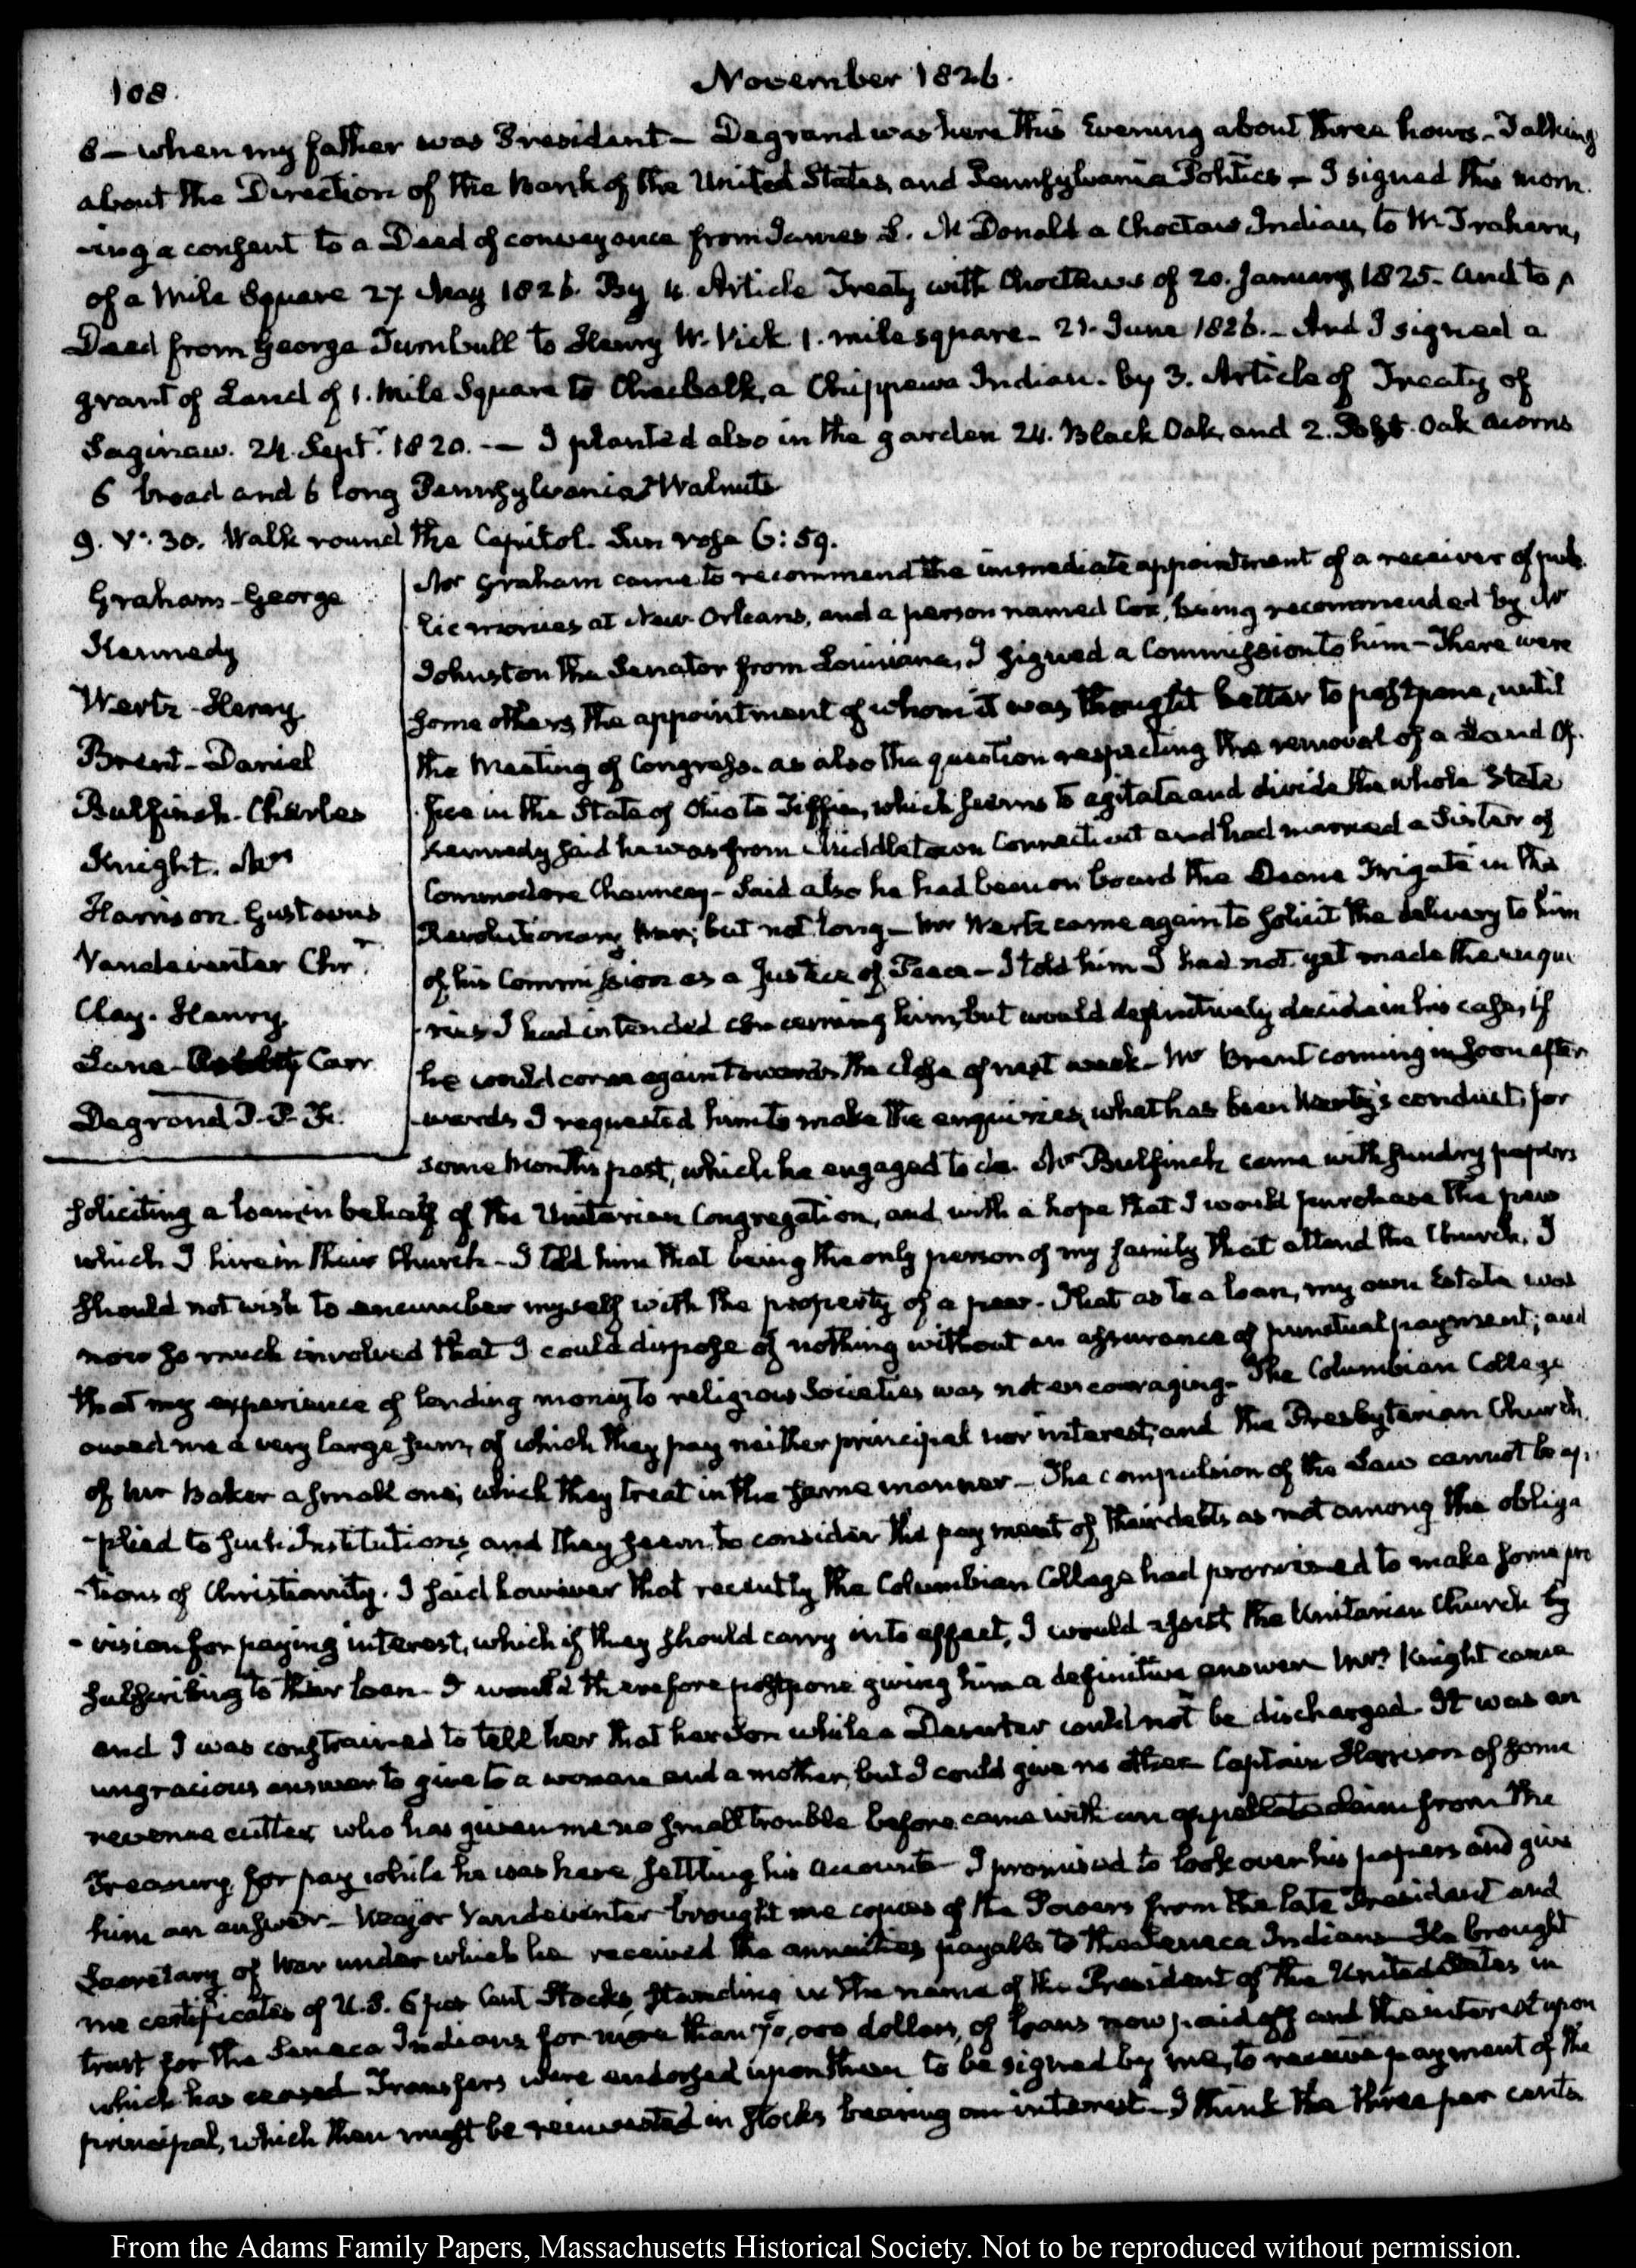 108.
November 1826.
8 — when my father was President — Degrand was here this Evening about three hours — Talking
about the Direction of the Bank of the United States, and Pennsylvania Politics — I signed this morn
-ing a consent to a Deed of conveyance from James L. McDonald a Choctaw Indian, to W. Trahern,
of a Mile Square 27 May 1826. By 4. Article Treaty with Choctaws of 20. January 1825. and to a
Deed from George Turnbull to Henry W. Vick 1. mile square — 21. June 1826. — And I signed a
grant of Land of 1. Mile Square to a Chippewa Indian. by 3. Article of Treaty of
Saginaw. 24. Septr. 1820. — I planted also in the garden 24. Black Oak, and 2. Post Oak acorns
6 broad and 6 long Pennsylvania Walnuts
9. V: 30. Walk round the Capitol. Sun rose 6:59.
Graham - George
Kennedy
Wertz - Henry
Brent - Daniel
Bulfinch - Charles
Knight. Mrs
Harrison. Gustavus
Vandeventer Chr.
Clay. Henry
Lane - Carr
Degrand P. P. F.
Mr Graham came to recommend the immediate appointment of a receiver of pub
lic monies at New Orleans, and a person named Cox, being recommended by Mr
Johnston the Senator from Louisiana, I signed a Commission to him — There were
some others, the appointment of whom it was thought better to postpone, until
the Meeting of Congress. as also the question respecting the removal of a Land Of-
fice in the State of Ohio to Tiffin, which seems to agitate and divide the whole State
Kennedy said he was from Middletown Connecticut and had married a Sister of
Commodore Chauncey — Said also he had been on board the Deane Frigate in the
Revolutionary War; but not long — Mr Wertz came again to solicit the delivery to him
of his Commission as a Justice of Peace — I told him I had not yet made the enqui
-ries I had intended concerning him, but would definitively decide in his case, if
he would come again towards the close of next week — Mr Brent coming in soon after
-wards I requested him to make the enquiries, what has been Wertz's conduct, for
some Months past, which he engaged to do. Mr Bulfinch came with sundry papers
soliciting a loan in behalf of the Unitarian Congregation, and with a hope that I would purchase the pew
which I hire in their Church — I told him that being the only person of my family that attend the Church, I
should not wish to encumber myself with the property of a pew — That as to a loan, my own Estate was
now so much involved that I could dispose of nothing without an assurance of punctual payment; and
that my experience of lending money to religious Societies was not encouraging — The Columbian College
owed me a very large sum, of which they pay neither principal nor interest, and the Presbyterian Church
of Mr Baker a small one, which they treat in the same manner — The compulsion of the Law cannot be ap-
-plied to such Institutions, and they seem to consider the payment of their debts as not among the obliga
-tions of Christianity. I said however that recently the Columbian College had promised to make some pro
-vision for paying interest, which if they should carry into effect, I would assist the Unitarian Church by
subscribing to their loan — I would therefore postpone giving him a definitive answer Mrs Knight came
and I was constrained to tell her that her Son while a Deserter could not be discharged — It was an
ungracious answer to give to a woman and a mother, but I could give no other Captain Harrison of some
revenue cutter who has given me no small trouble before, came with an appellate claim from the
Treasury, for pay while he was here settling his Accounts — I promised to look over his papers and give
him an answer — Major Vandeventer brought me copies of the Powers from the late President and
Secretary of War under which he received the annuities payable to the Seneca Indians — He brought
me certificates of U.S. 6 per Cent Stocks, standing in the name of the President of the United States in
trust for the Seneca Indians for more than 70,000 dollars, of loans now paid off and the interest upon
which has ceased Transfers were endorsed upon them to be signed by me, to receive payment of the
principal, which then must be reinvested in stocks bearing an interest — I think the three per cents
From the Adams Family Papers, Massachusetts Historical Society. Not to be reproduced without permission.